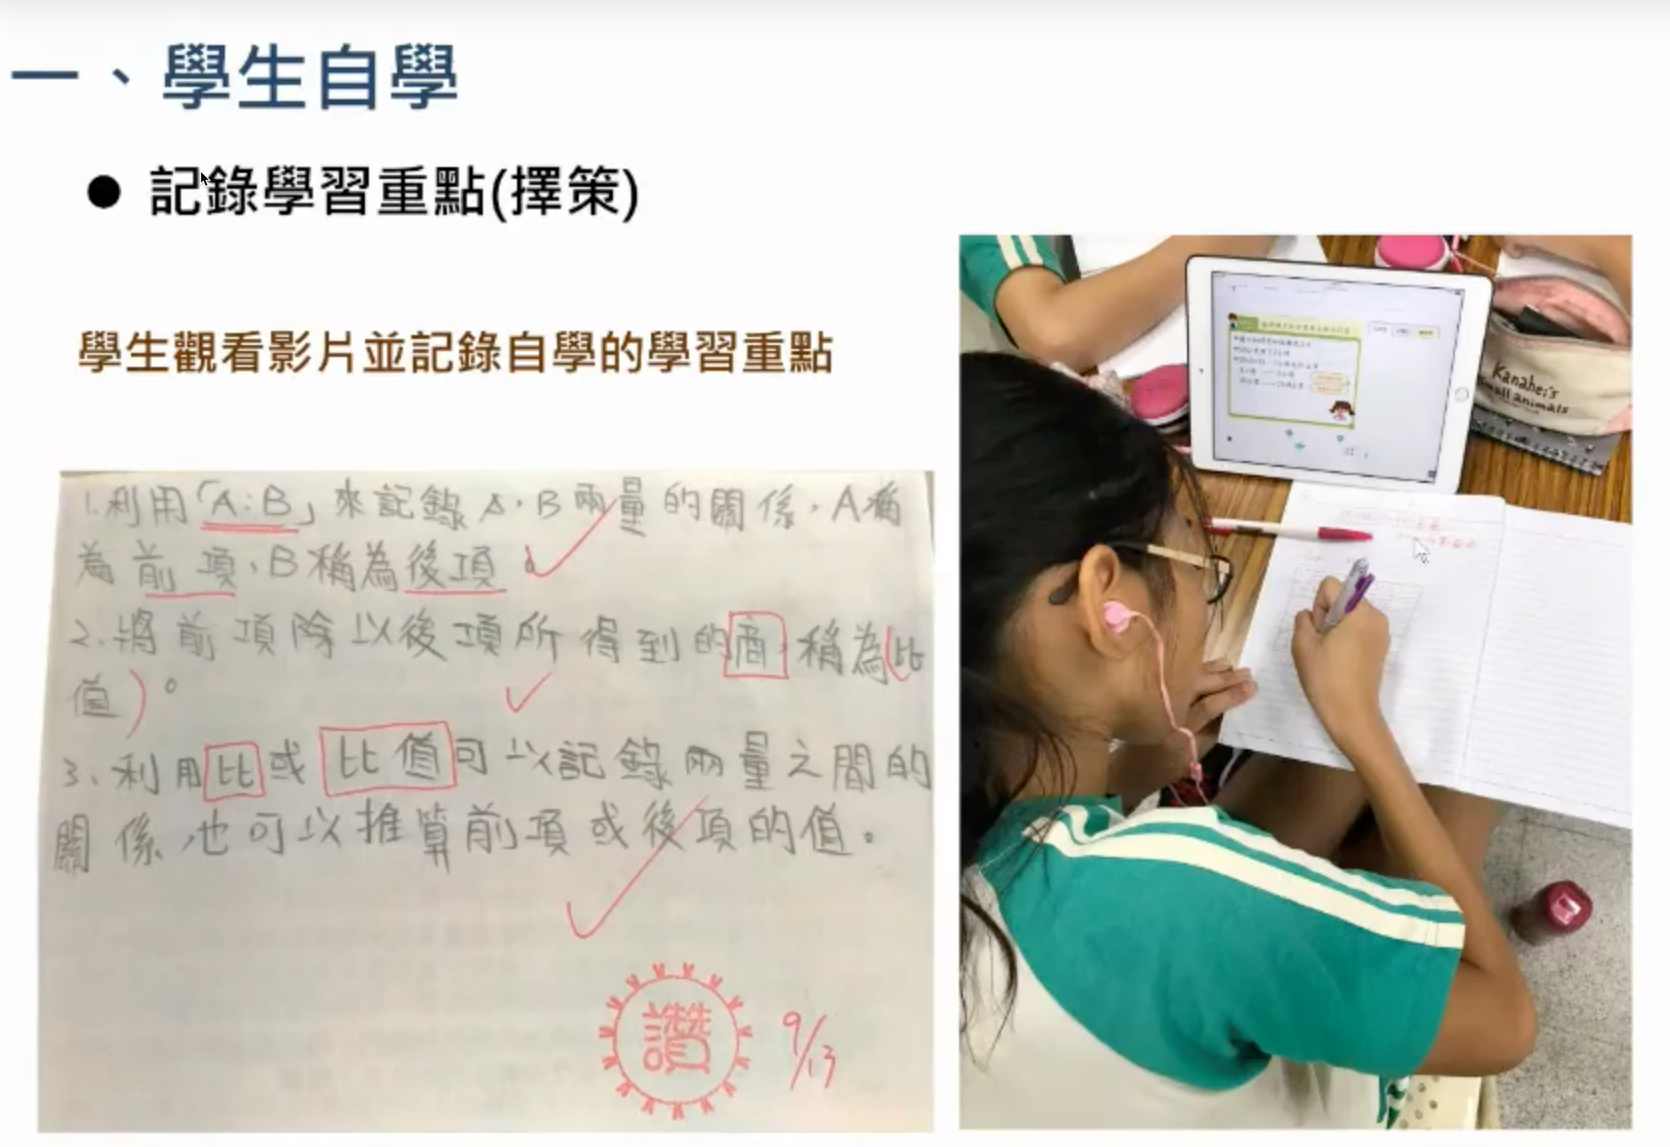 一、學生自學
● 記錄學習重點(擇策)
學生觀看影片並記錄自學的學習重點
1.利用「A:B」來記錄A、B兩量的關係,A稱
為前項,B稱為後項。
2.將前項除以後項所得到的商,稱為(比
值)。
3.利用比或比值可以記錄兩量之間的
關係,也可以推算前項或後項的值。
讚
9/13
Kanahei's
Small animals